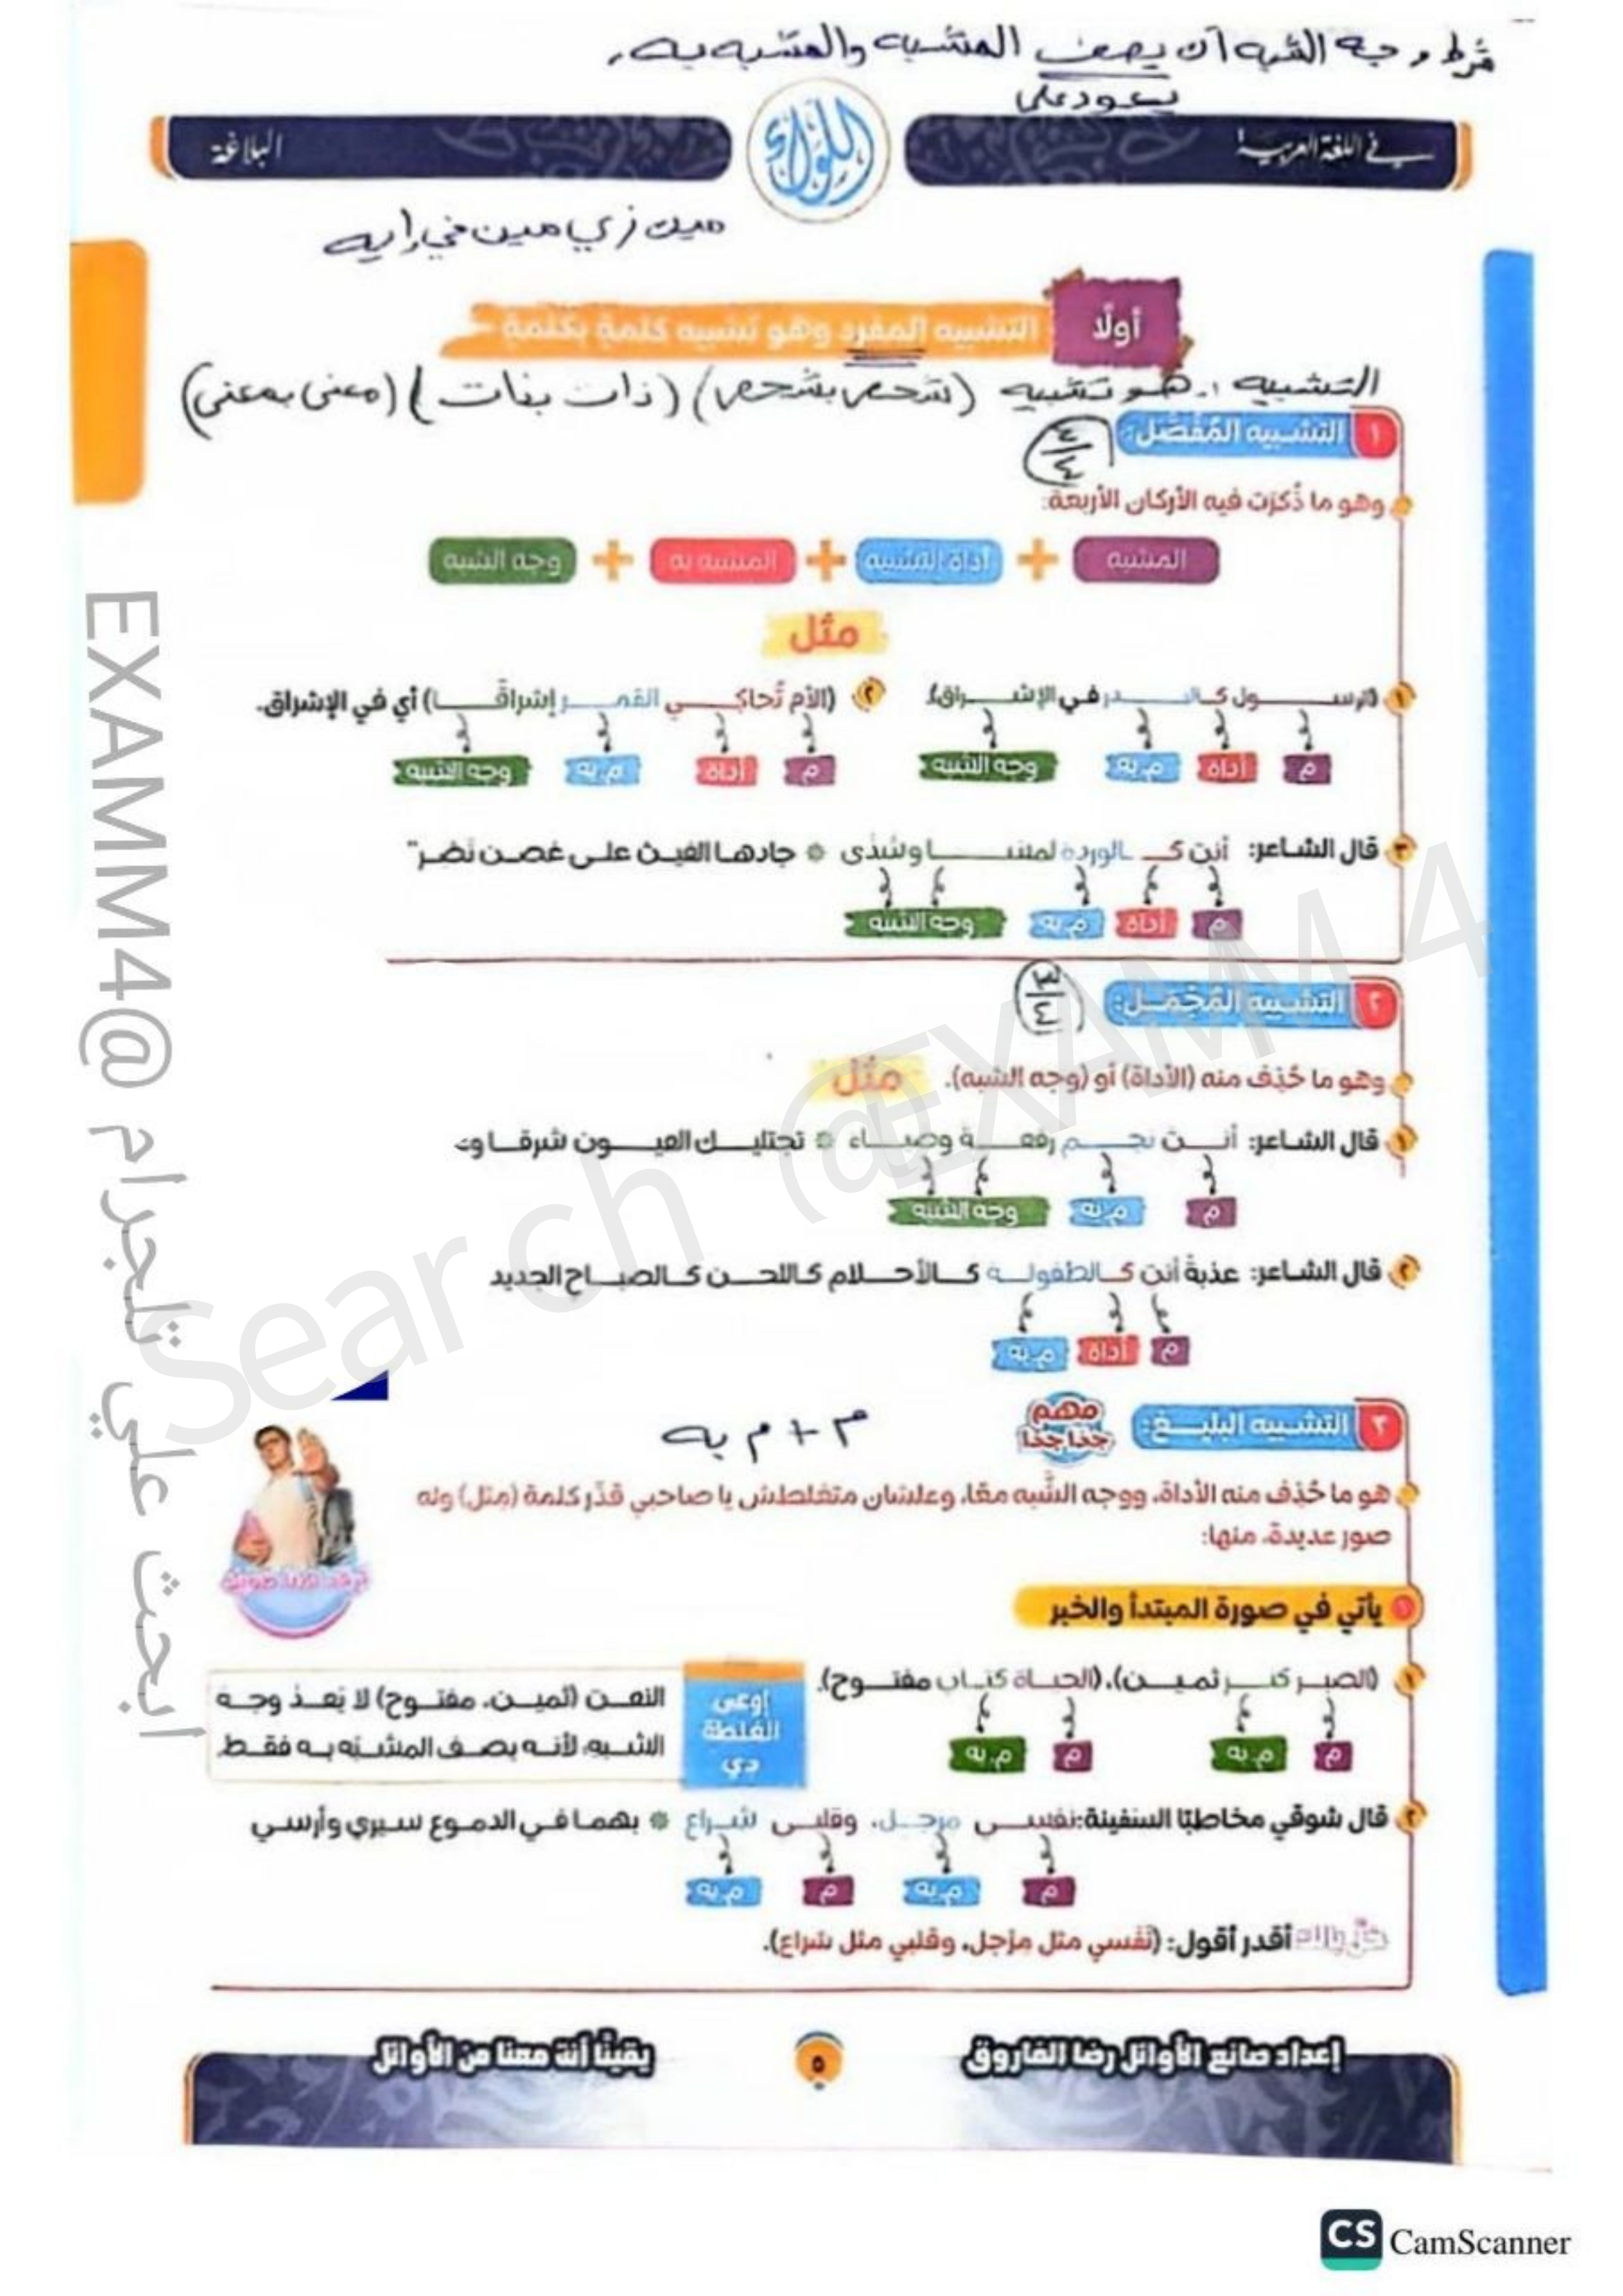 شرط وجه الشبه أن يصف المشبه والمشبه به
يعود على
في اللغة العربية
اللواء
البلاغة
مين زي مين في إيه
أولًا
التشبيه المفرد وهو تشبيه كلمةٍ بكلمةٍ
التشبيه :. هو تشبيه (شخص بشخص) (ذات بذات) (معنى بمعنى)
١ التشبيه المُفَصَّل: ٤/٤
وهو ما ذُكِرَت فيه الأركان الأربعة:
المشبه + أداة التشبيه + المشبه به + وجه الشبه
مثل
١ (الرسول كالبدر في الإشراق).
م أداة م.به وجه الشبه
٢ (الأم تُحاكي القمر إشراقًا) أي في الإشراق.
م أداة م.به وجه الشبه
٣ قال الشاعر: أنتِ كالوردة لمسًا وشذى * جادها الغيث على غصن نضر"
م أداة م.به وجه الشبه
٢ التشبيه المُجْمَل: ٣/٤
وهو ما حُذِف منه (الأداة) أو (وجه الشبه). مثل
١ قال الشاعر: أنت نجم رفعة وضياء * تجتليك العيون شرقا و
م م.به وجه الشبه
٢ قال الشاعر: عذبةٌ أنتِ كالطفولة كالأحلام كاللحن كالصباح الجديد
م أداة م.به
٣ التشبيه البليغ: مهم جدا جدا م + م به
هو ما حُذِف منه الأداة، ووجه الشَّبه معًا، وعلشان متغلطش يا صاحبي قدِّر كلمة (مثل) وله
صور عديدة، منها:
١ يأتي في صورة المبتدأ والخبر
١ (الصبر كنز ثمين)، (الحياة كتاب مفتوح).
م م.به م م.به
إوعى
الغلطة
دي
النعت (ثمين، مفتوح) لا يُعد وجه
الشبه لأنه يصف المشبّه به فقط
٢ قال شوقي مخاطبًا السفينة: نفسي مرجل، وقلبي شراع * بهما في الدموع سيري وأرسي
م م.به م م.به
خلّ بالك أقدر أقول: (نَفْسي مثل مِرْجل، وقلبي مثل شراع).
إعداد صانع الأوائل رضا الفاروق
٥
يقينًا أنت معنا من الأوائل
ابحث علي تلجرام @EXAMM4
Search @EXAMM4
CS CamScanner